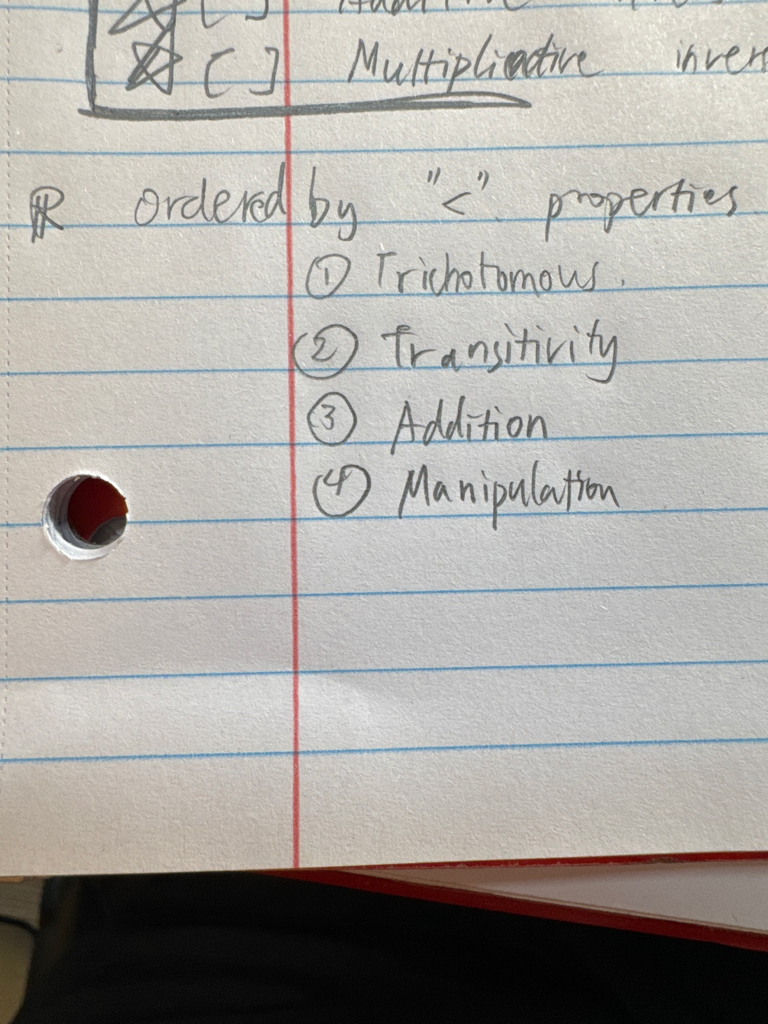 [ ]
[ ] Multiplicative
ℝ ordered by "<" properties
① Trichotomous.
② Transitivity
③ Addition
④ Manipulation